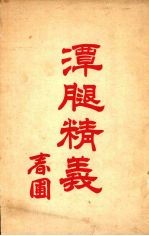 潭腿精義
春圃